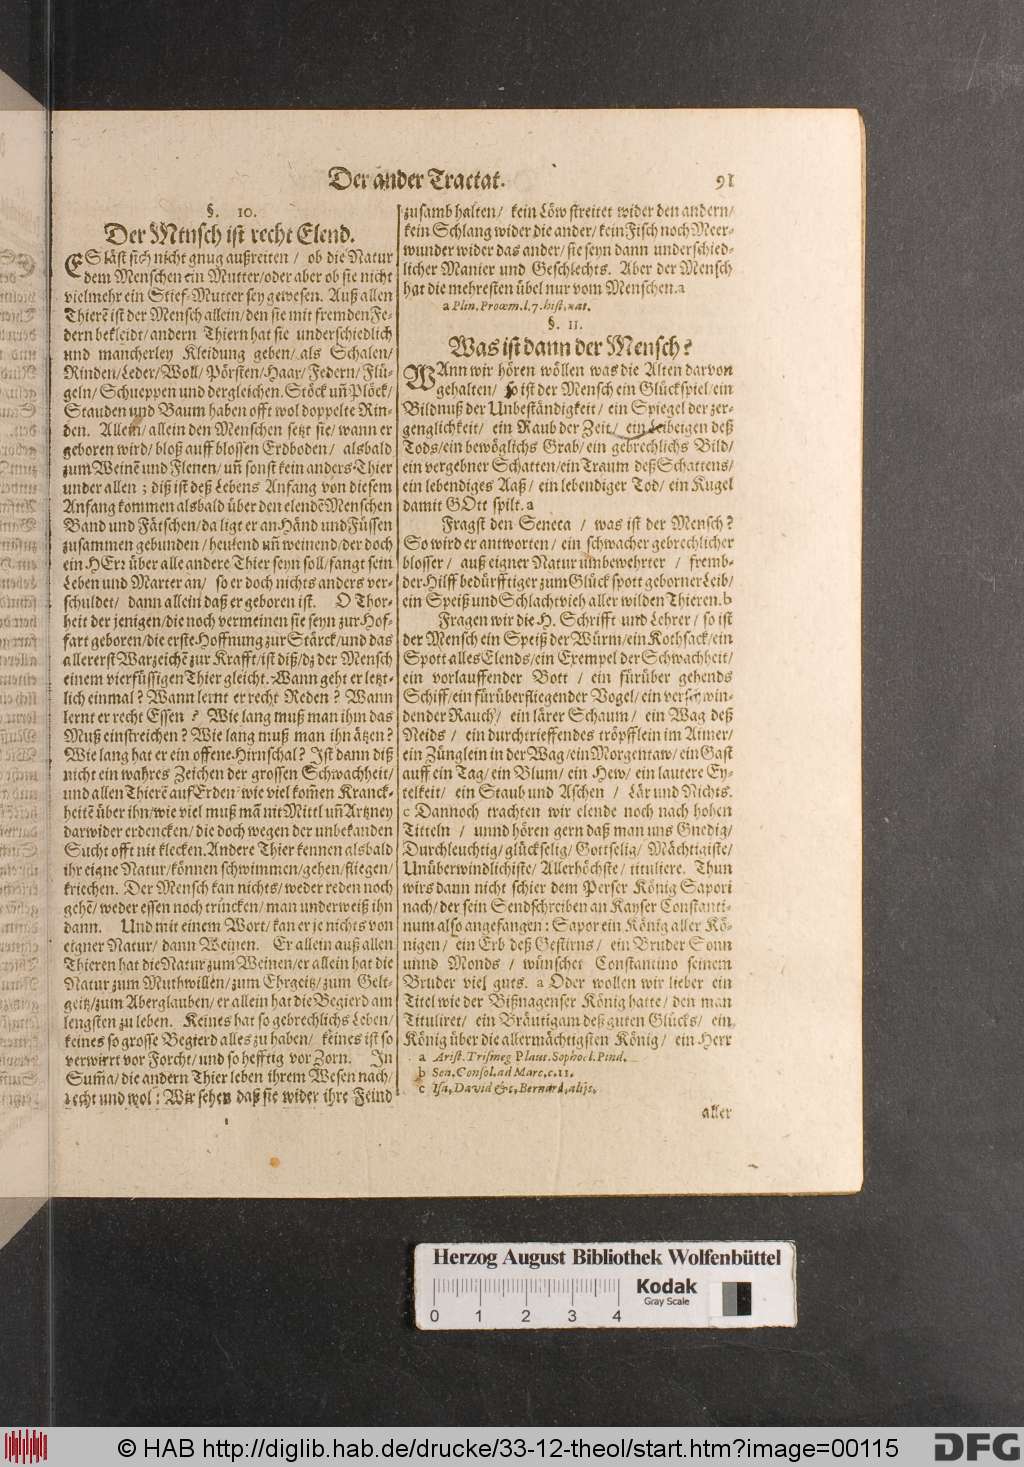 Der ander Tractat. 91
§. 10.
Der Mensch ist recht Elend.
ES läst sich nicht gnug außreiten / ob die Natur
dem Menschen ein Mutter/oder aber ob sie nicht
vielmehr ein Stief-Mutter sey gewesen. Auß allen
Thierē ist der Mensch allein/den sie mit fremden Fe-
dern bekleidt/andern Thiern hat sie underschiedlich
und mancherley Kleidung geben/als Schalen/
Rinden/Leder/Woll/Pörsten/Haar/Federn/Flü-
geln/Schueppen und dergleichen. Stöck uñ Plöck/
Stauden und Baum haben offt wol doppelte Rin-
den. Allein/allein den Menschen setzt sie/wann er
geboren wird/bloß auff blossen Erdboden/ alsbald
zum Weinē und Flenen/ uñ sonst kein anders Thier
under allen; diß ist deß Lebens Anfang von diesem
Anfang kommen alsbald über den elendē Menschen
Band und Fätschen/da ligt er an Händ und Füssen
zusammen gebunden/heulend uñ weinend/der doch
ein HErr über alle andere Thier seyn soll/fangt sein
Leben und Marter an/ so er doch nichts anders ver-
schuldet/ dann allein daß er geboren ist. O Thor-
heit der jenigen/die noch vermeinen sie seyn zur Hof-
fart geboren/die erste Hoffnung zur Stärck/und das
allererst Warzeichē zur Krafft/ist diß/dz der Mensch
einem vierfüssigen Thier gleicht. Wann geht er letzt-
lich einmal? Wann lernt er recht Reden? Wann
lernt er recht Essen? Wie lang muß man ihm das
Muß einstreichen? Wie lang muß man ihn ätzen?
Wie lang hat er ein offene Hirnschal? Ist dann diß
nicht ein wahres Zeichen der grossen Schwachheit/
und allen Thierē auf Erden/wie viel kom̄en Kranck-
heitē über ihn/wie viel muß mā mit Mittl uñ Artzney
darwider erdencken/die doch wegen der unbekanden
Sucht offt nit klecken. Andere Thier kennen alsbald
ihr eigne Natur/können schwimmen/gehen/fliegen/
kriechen. Der Mensch kan nichts/weder reden noch
gehē/weder essen noch trincken/man underweiß ihn
dann. Und mit einem Wort/kan er je nichts von
eigner Natur/ dann Weinen. Er allein auß allen
Thieren hat die Natur zum Weinen/er allein hat die
Natur zum Muthwillen/zum Ehrgeitz/zum Gelt-
geitz/zum Aberglauben/er allein hat die Begierd am
lengsten zu leben. Keines hat so gebrechlichs Leben/
keines so grosse Begierd alles zu haben/ keines ist so
verwirrt vor Forcht/und so hefftig vor Zorn. In
Sum̄a/die andern Thier leben ihrem Wesen nach/
recht und wol: Wir sehen daß sie wider ihre Feind
zusamb halten/ kein Löw streitet wider den andern/
kein Schlang wider die ander/kein Fisch noch Meer-
wunder wider das ander/sie seyn dann underschied-
licher Manier und Geschlechts. Aber der Mensch
hat die mehresten übel nur vom Menschen.a
a Plin. Proœm. l. 7. hist. nat.
§. 11.
Was ist dann der Mensch?
WAnn wir hören wöllen was die Alten darvon
gehalten/ so ist der Mensch ein Glückspiel/ein
Bildnuß der Unbeständigkeit/ein Spiegel der zer-
genglichkeit/ ein Raub der Zeit/ ein Leibeigen deß
Tods/ein bewöglichs Grab/ein gebrechlichs Bild/
ein vergebner Schatten/ein Traum deß Schattens/
ein lebendiges Aaß/ein lebendiger Tod/ein Kugel
damit GOtt spilt.a
Fragst den Seneca / was ist der Mensch?
So wird er antworten/ ein schwacher gebrechlicher
blosser/ auß eigner Natur umbewehrter / fremb-
der Hilff bedürfftiger zum Glück spott geborner Leib/
ein Speiß und Schlachtvieh aller wilden Thieren.b
Fragen wir die H. Schrifft und Lehrer/ so ist
der Mensch ein Speiß der Würm/ein Kothsack/ein
Spott alles Elends/ein Exempel der Schwachheit/
ein vorlauffender Bott / ein fürüber gehends
Schiff/ein fürüberfliegender Vogel/ein verschwin-
dender Rauch/ ein lärer Schaum/ ein Wag deß
Neids/ ein durchtrieffendes tröpfflein im Aimer/
ein Zünglein in der Wag/ein Morgentaw/ein Gast
auff ein Tag/ein Blum/ ein Hew/ein lautere Ey-
telkeit/ ein Staub und Aschen / Lär und Nichts.
c Dannoch trachten wir elende noch nach hohen
Titteln / unnd hören gern daß man uns Gnedig/
Durchleuchtig/glückselig/Gottselig/ Mächtigiste/
Unüberwindlichiste/ Allerhöchste/ tituliere. Thun
wirs dann nicht schier dem Perser König Sapori
nach/der sein Sendschreiben an Kayser Constanti-
num also angefangen: Sapor ein König aller Kö-
nigen/ ein Erb deß Gestirns/ ein Bruder Sonn
unnd Monds / wünschet Constantino seinem
Bruder viel guts. a Oder wollen wir lieber ein
Titel wie der Bißnagenser König hatte/den man
Tituliret/ ein Bräutigam deß guten Glücks/ ein
König über die allermächtigsten König/ ein Herr
a Arist. Trismeg Plaut. Sophocl. Pind.
b Sen. Consol. ad Marc. c. 11.
c Isa, David &c, Bernard, alijs.
aller
Herzog August Bibliothek Wolfenbüttel
0 1 2 3 4
Kodak
Gray Scale
© HAB http://diglib.hab.de/drucke/33-12-theol/start.htm?image=00115
DFG